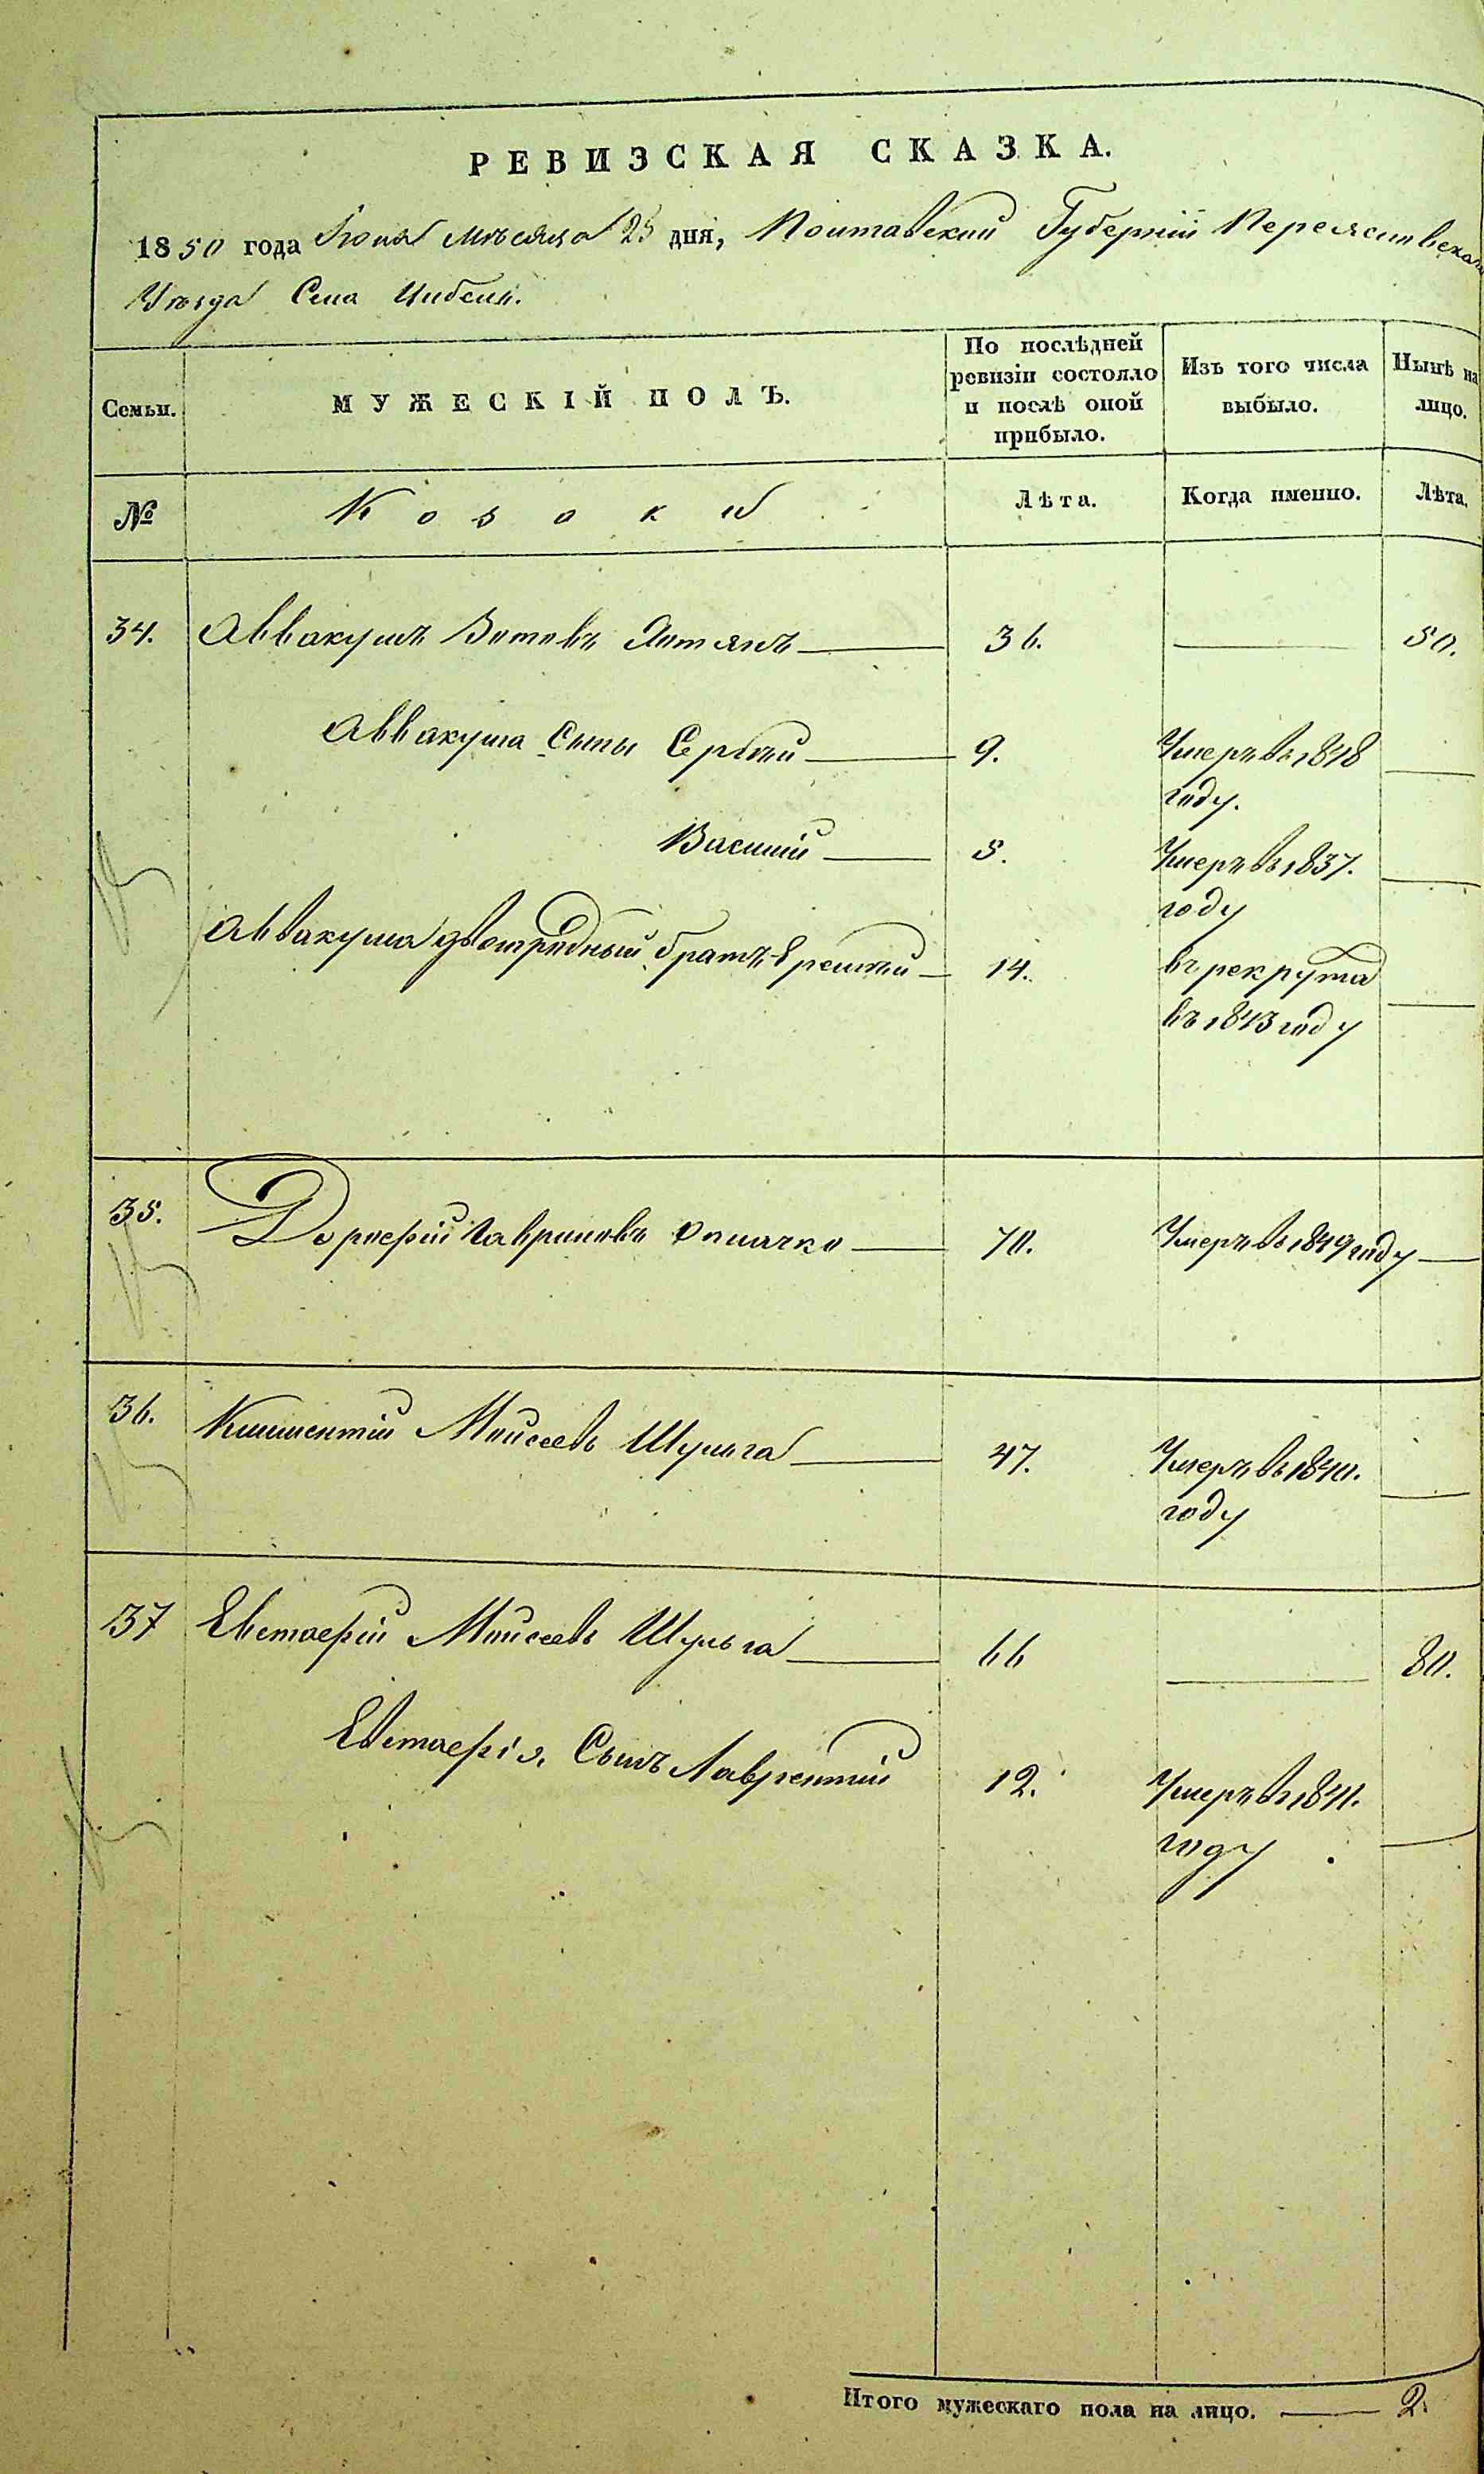 РЕВИЗСКАЯ СКАЗКА.
1850 года Июня мѣсяца 25 дня, Полтавской Губерніи Переяславскаго
Уѣзда Села Цибель.
Семьи.
МУЖЕСКІЙ ПОЛЪ.
По послѣдней ревизіи состояло и послѣ оной прибыло.
Изъ того числа выбыло.
Нынѣ на лицо.
№
Козаки
Лѣта.
Когда именно.
Лѣта.
34. Аввакумъ Зотовъ 36. 50.
Аввакума Сыны Сергѣй 9. Умеръ въ 1848
году.
Василій 5. Умеръ въ 1837.
году
Аввакума двоюродный братъ Еремѣй 14. въ рекрута
въ 1843 году
35. Дорофей Гавриловъ 70. Умеръ въ 1849 году
36. Климентій Моисеевъ Шульга 47. Умеръ въ 1840.
году
37 Евстафій Моисеевъ Шульга 66 80.
Евстафія Сынъ Лаврентій 12. Умеръ въ 1841.
году
Итого мужескаго пола на лицо. 2.